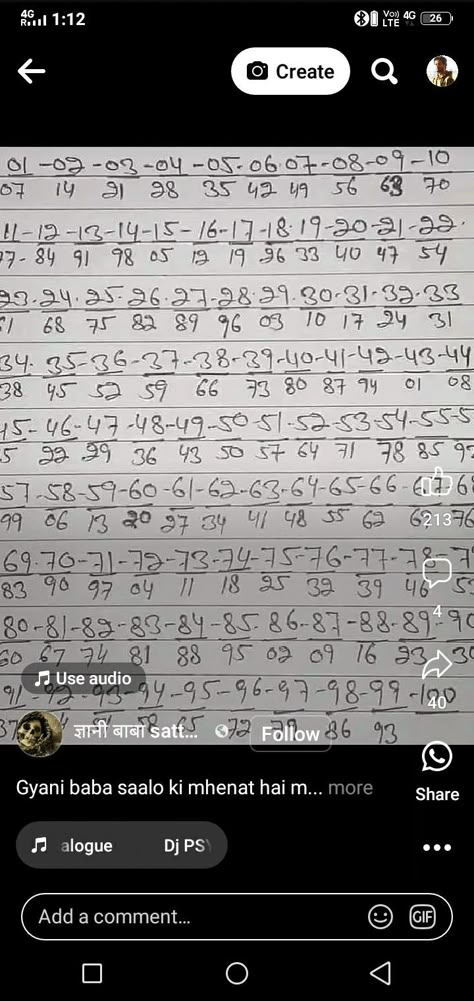 4G
R 1:12
Vo))
LTE
4G
26
Create
01-02-03-04-05-06.07-08-09-10
07 14 21 28 35 42 49 56 63 70
11-12-13-14-15-16-17-18.19-20-21-22
77-84 91 98 05 12 19 26 33 40 47 54
23.24.25.26.27-28.29.30-31-32.33
61 68 75 82 89 96 03 10 17 24 31
34.35-36-37-38-39-40-41-42-43-44
38 45 52 59 66 73 80 87 94 01 08
45-46-47-48-49-50-51-52-53-54-55-5
5 22 29 36 43 50 57 64 71 78 85 92
57-58-59-60-61-62-63-64-65-66-67 68
99 06 13 20 27 34 41 48 55 62 76
213
69.70-71-72-73-74-75-76-77-78-7
83 90 97 04 11 18 25 32 39 46 53
4
80-81-82-83-84-85.86-87-88-89-90
60 67 74 81 88 95 02 09 16 23 30
Use audio
40
91-92-93-94-95-96-97-98-99-100
37 58 65 72 79 86 93
ज्ञानी बाबा satt...
Follow
Gyani baba saalo ki mhenat hai m... more
Share
alogue Dj PSY
Add a comment...
GIF